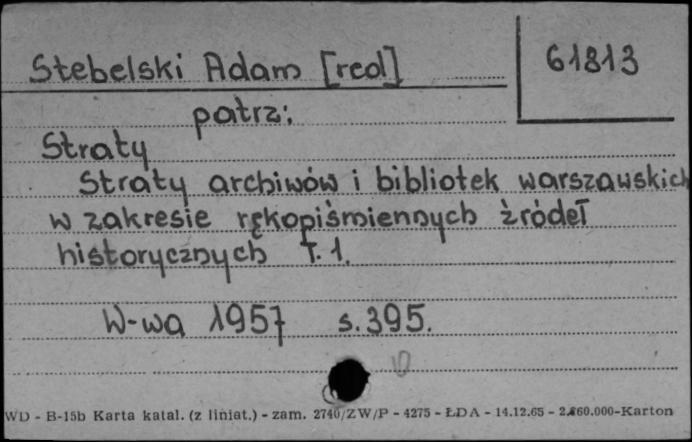 Stebelski Adam [red]
61813
patrz:
Straty
Straty archiwów i bibliotek warszawskich
w zakresie rękopiśmiennych źródeł
historycznych T. 1.
W-wa 1957 s. 395.
WD - B-15b Karta katal. (z liniat.) - zam. 2740/ZW/P - 4275 - ŁDA - 14.12.65 - 2.860.000-Karton